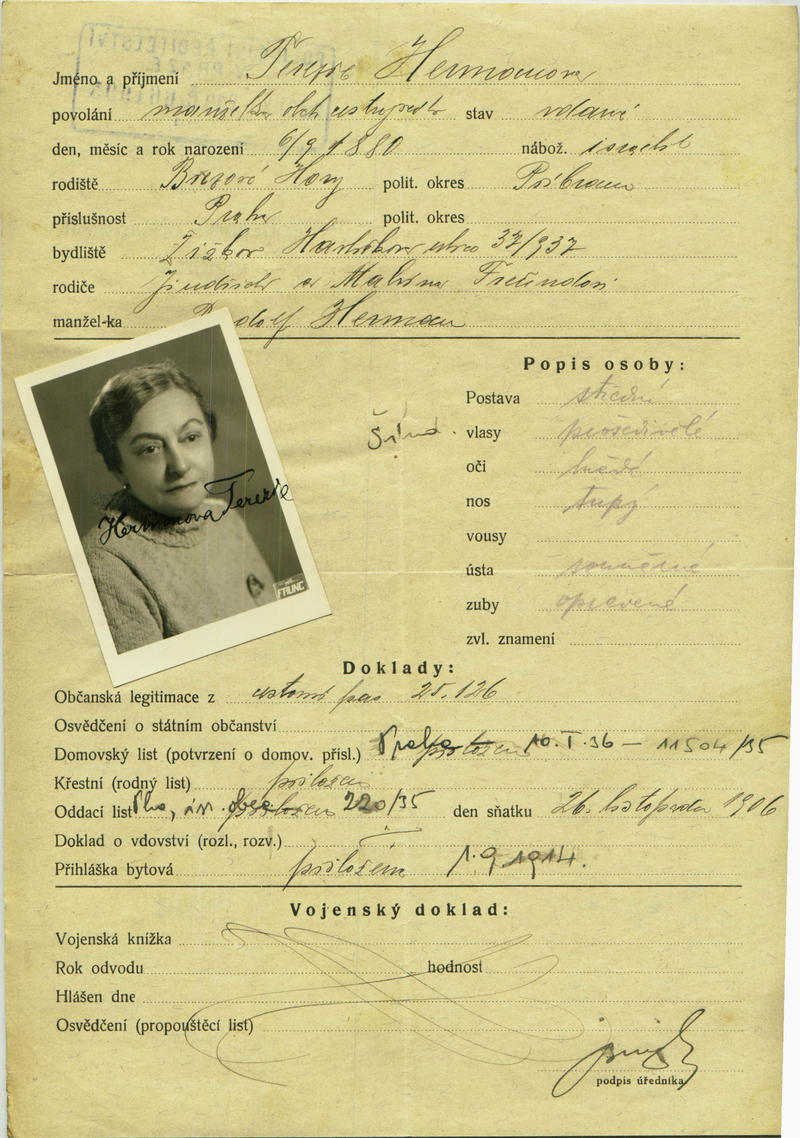 Jméno a příjmení Terezie Hermanova
povolání manželka obch. stav vdaná
den, měsíc a rok narození 6/9 1880 nábož. israelit
rodiště Březové Hory polit. okres Příbram
příslušnost Praha polit. okres
bydliště Žižkov 37/937
rodiče Jindřich a Freundovi
manžel-ka Rudolf Herman
Popis osoby:
Postava střední
vlasy prošedivělé
oči hnědé
nos tupý
vousy
ústa souměrné
zuby opravené
zvl. znamení
Hermanova Terezie
Doklady:
Občanská legitimace z cestovní pas 25.126
Osvědčení o státním občanství
Domovský list (potvrzení o domov. přísl.) Praha přiložen 10. I. 36 – 11504/35
Křestní (rodný list) přiložen
Oddací list přiložen 220/35 den sňatku 26. listopadu 1906
Doklad o vdovství (rozl., rozv.)
Přihláška bytová přiložena 1. 9. 1914.
Vojenský doklad:
Vojenská knížka
Rok odvodu hodnost
Hlášen dne
Osvědčení (propouštěcí list)
podpis úředníka